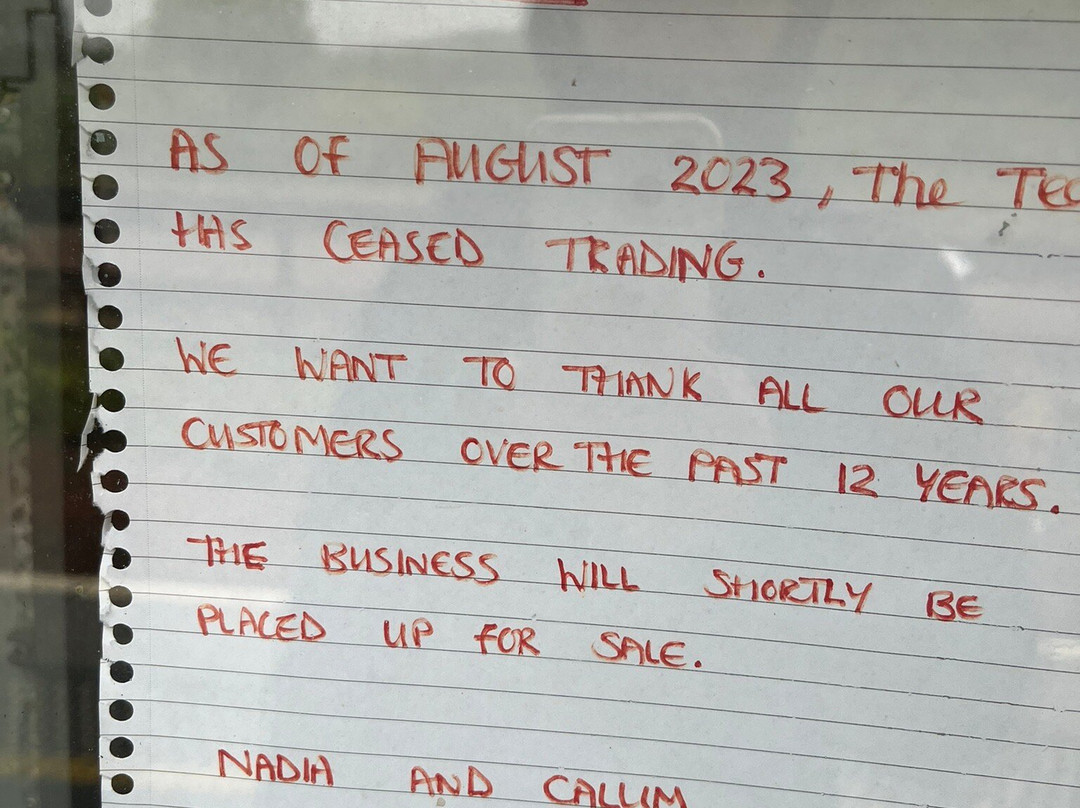 AS OF AUGUST 2023, The
HAS CEASED TRADING.
WE WANT TO THANK ALL OUR
CUSTOMERS OVER THE PAST 12 YEARS.
THE BUSINESS WILL SHORTLY BE
PLACED UP FOR SALE.
NADIA AND CALLUM